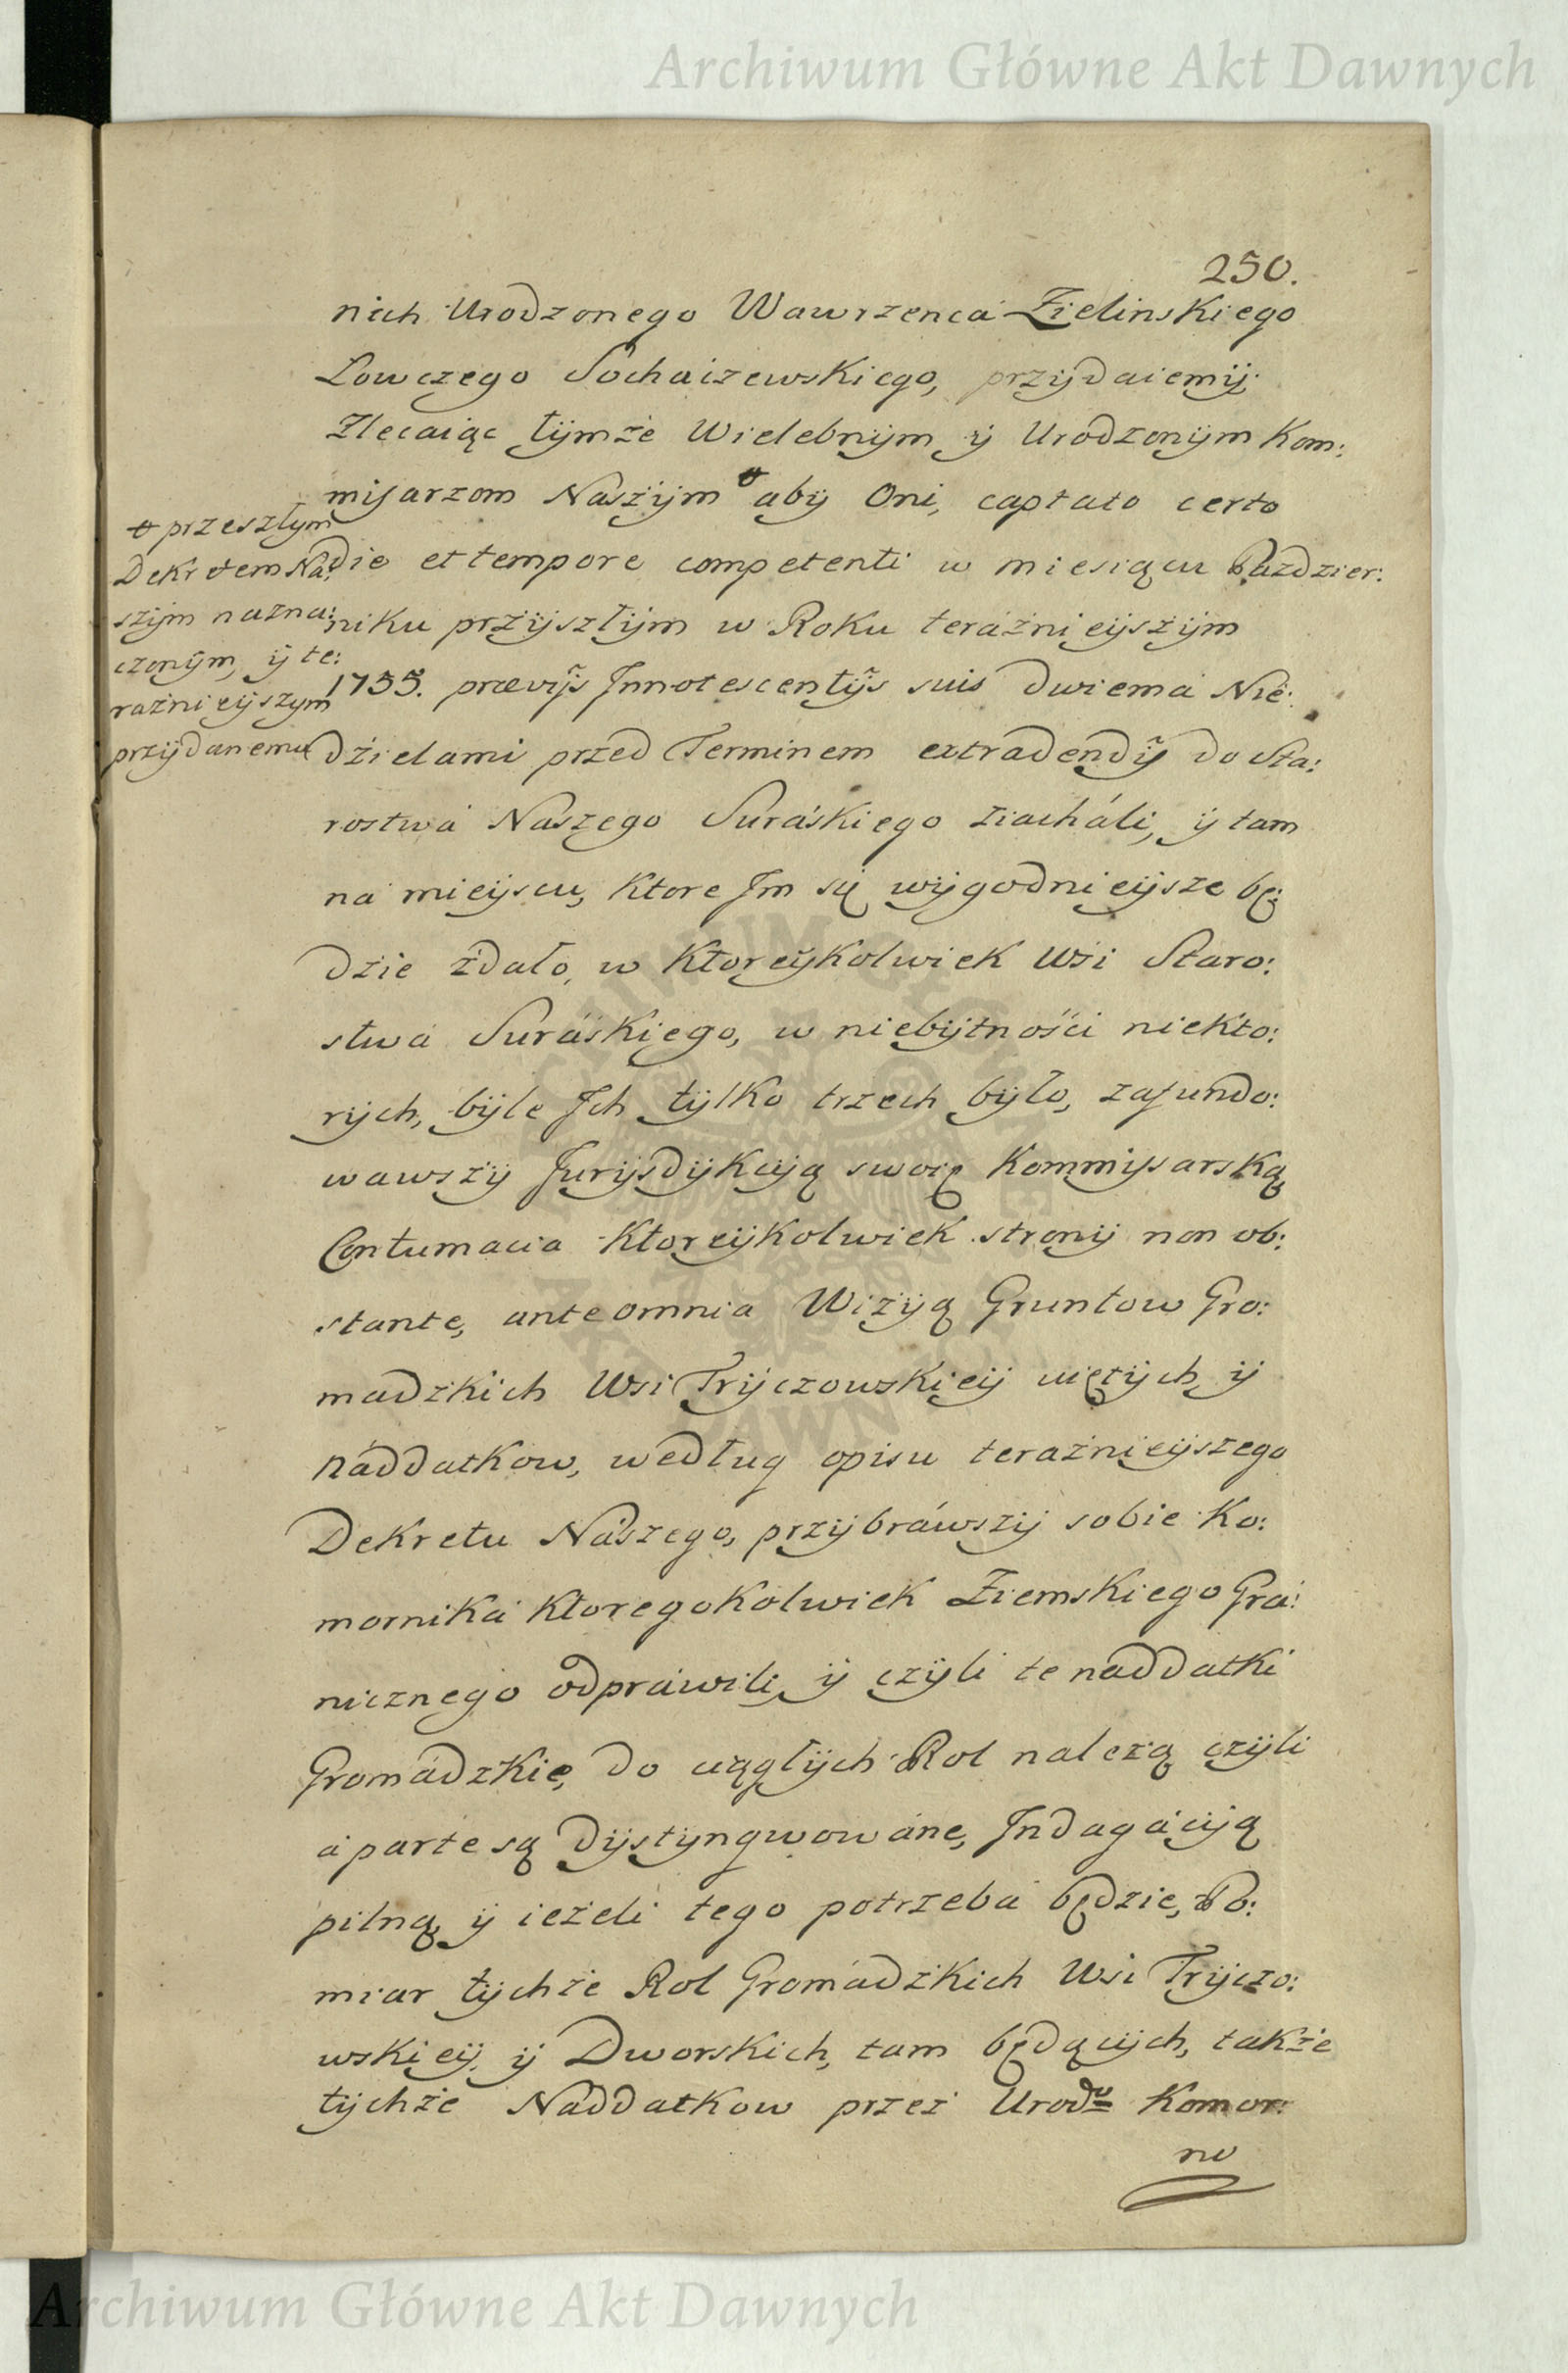 Archiwum Główne Akt Dawnych
250.
nich Urodzonego Wawrzenca Zielinskiego
Łowczego Sochaczewskiego, przÿdaiemÿ.
Zlecaiąc tÿmże Wielebnÿm ÿ Urodzonÿm Kom:
misarzom Naszÿm abÿ Oni, captato certo
die et tempore competenti w miesiącu Pazdzier:
niku przÿszłÿm w Roku teráznieÿszÿm
1755. prævijs Innotescentijs suis dwiema Nie:
dzielami przed Terminem extradendis do Sta:
rostwá Naszego Suráskiego ziacháli, ÿ tam
ná mieÿscu, Ktore Im się wÿgodnieÿsze bę:
dzie zdało, w Ktoreÿkolwiek Wsi Staro:
stwá Suráskiego, w niebÿtności niekto:
rÿch, bÿle Ich tÿlko trzech bÿło, zafundo:
wawszÿ Jurÿsdÿkcÿą swoię Kommissarską,
Contumacia Ktoreÿkolwiek stronÿ non ob:
stante, ante omnia Wizÿą Gruntow Gro:
madzkich Wsi Trÿczowskieÿ uiętÿch ÿ
Náddatkow, według opisu teraznieÿszego
Dekretu Nászego, przÿbráwszÿ sobie Ko:
morniká Ktoregokolwiek Ziemskiego Grá:
nicznego odpráwili, ÿ czÿli te naddatki
Gromádzkie, do ciągłÿch Rol należą czÿli
áparte są dÿstÿngwowáne, Indagácÿą
pilną, ÿ ieżeli tego potrzebá będzie, Po:
miar tÿchże Rol Gromádzkich Wsi Trÿczo:
wskieÿ, ÿ Dworskich, tam będącÿch, także
tÿchże Náddatkow przez Urodᵒ Komor:
no
przeszłÿm
Dekretem Ná:
szÿm nazna:
czonÿm, ÿ te:
raznieÿszym
przÿdanemu
Archiwum Główne Akt Dawnych